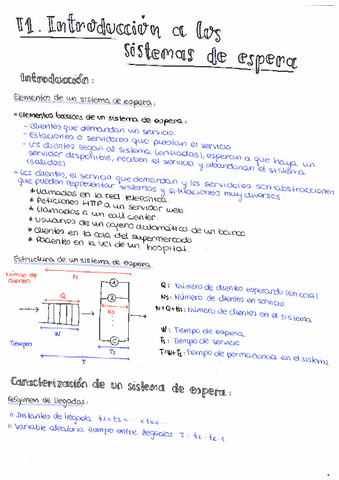 T1. Introducción a los
sistemas de espera
Introducción:
Elementos de un sistema de espera:
• Elementos básicos de un sistema de espera:
- Clientes que demandan un servicio.
- Estaciones o servidores que prestan el servicio
- Los clientes llegan al sistema (entradas), esperan a que haya un
servidor disponible, reciben el servicio y abandonan el sistema
(salidas)
• Los clientes, el servicio que demandan y los servidores son abstracciones
que pueden representar sistemas y situaciones muy diversas
* Llamadas en la red telefónica.
* Peticiones HTTP a un servidor web.
* Llamadas a un call center.
* Usuarios de un cajero automático de un banco
* Clientes en la cola del supermercado
* Pacientes en la UCI de un hospital.
Estructura de un sistema de espera
Número de
clientes
N
Q
Ns
W
Ts
T
Tiempos
Q: Número de clientes esperando (en cola)
Ns: Número de clientes en servicio.
N=Q+Ns: Número de clientes en el sistema
W: Tiempo de espera.
Ts: Tiempo de servicio.
T=W+Ts: Tiempo de permanencia en el sistema
Caracterización de un sistema de espera:
Régimen de llegadas:
o Instantes de llegada t1<t2< ... <tk< ...
o Variable aleatoria tiempo entre llegadas τ = tk - tk-1